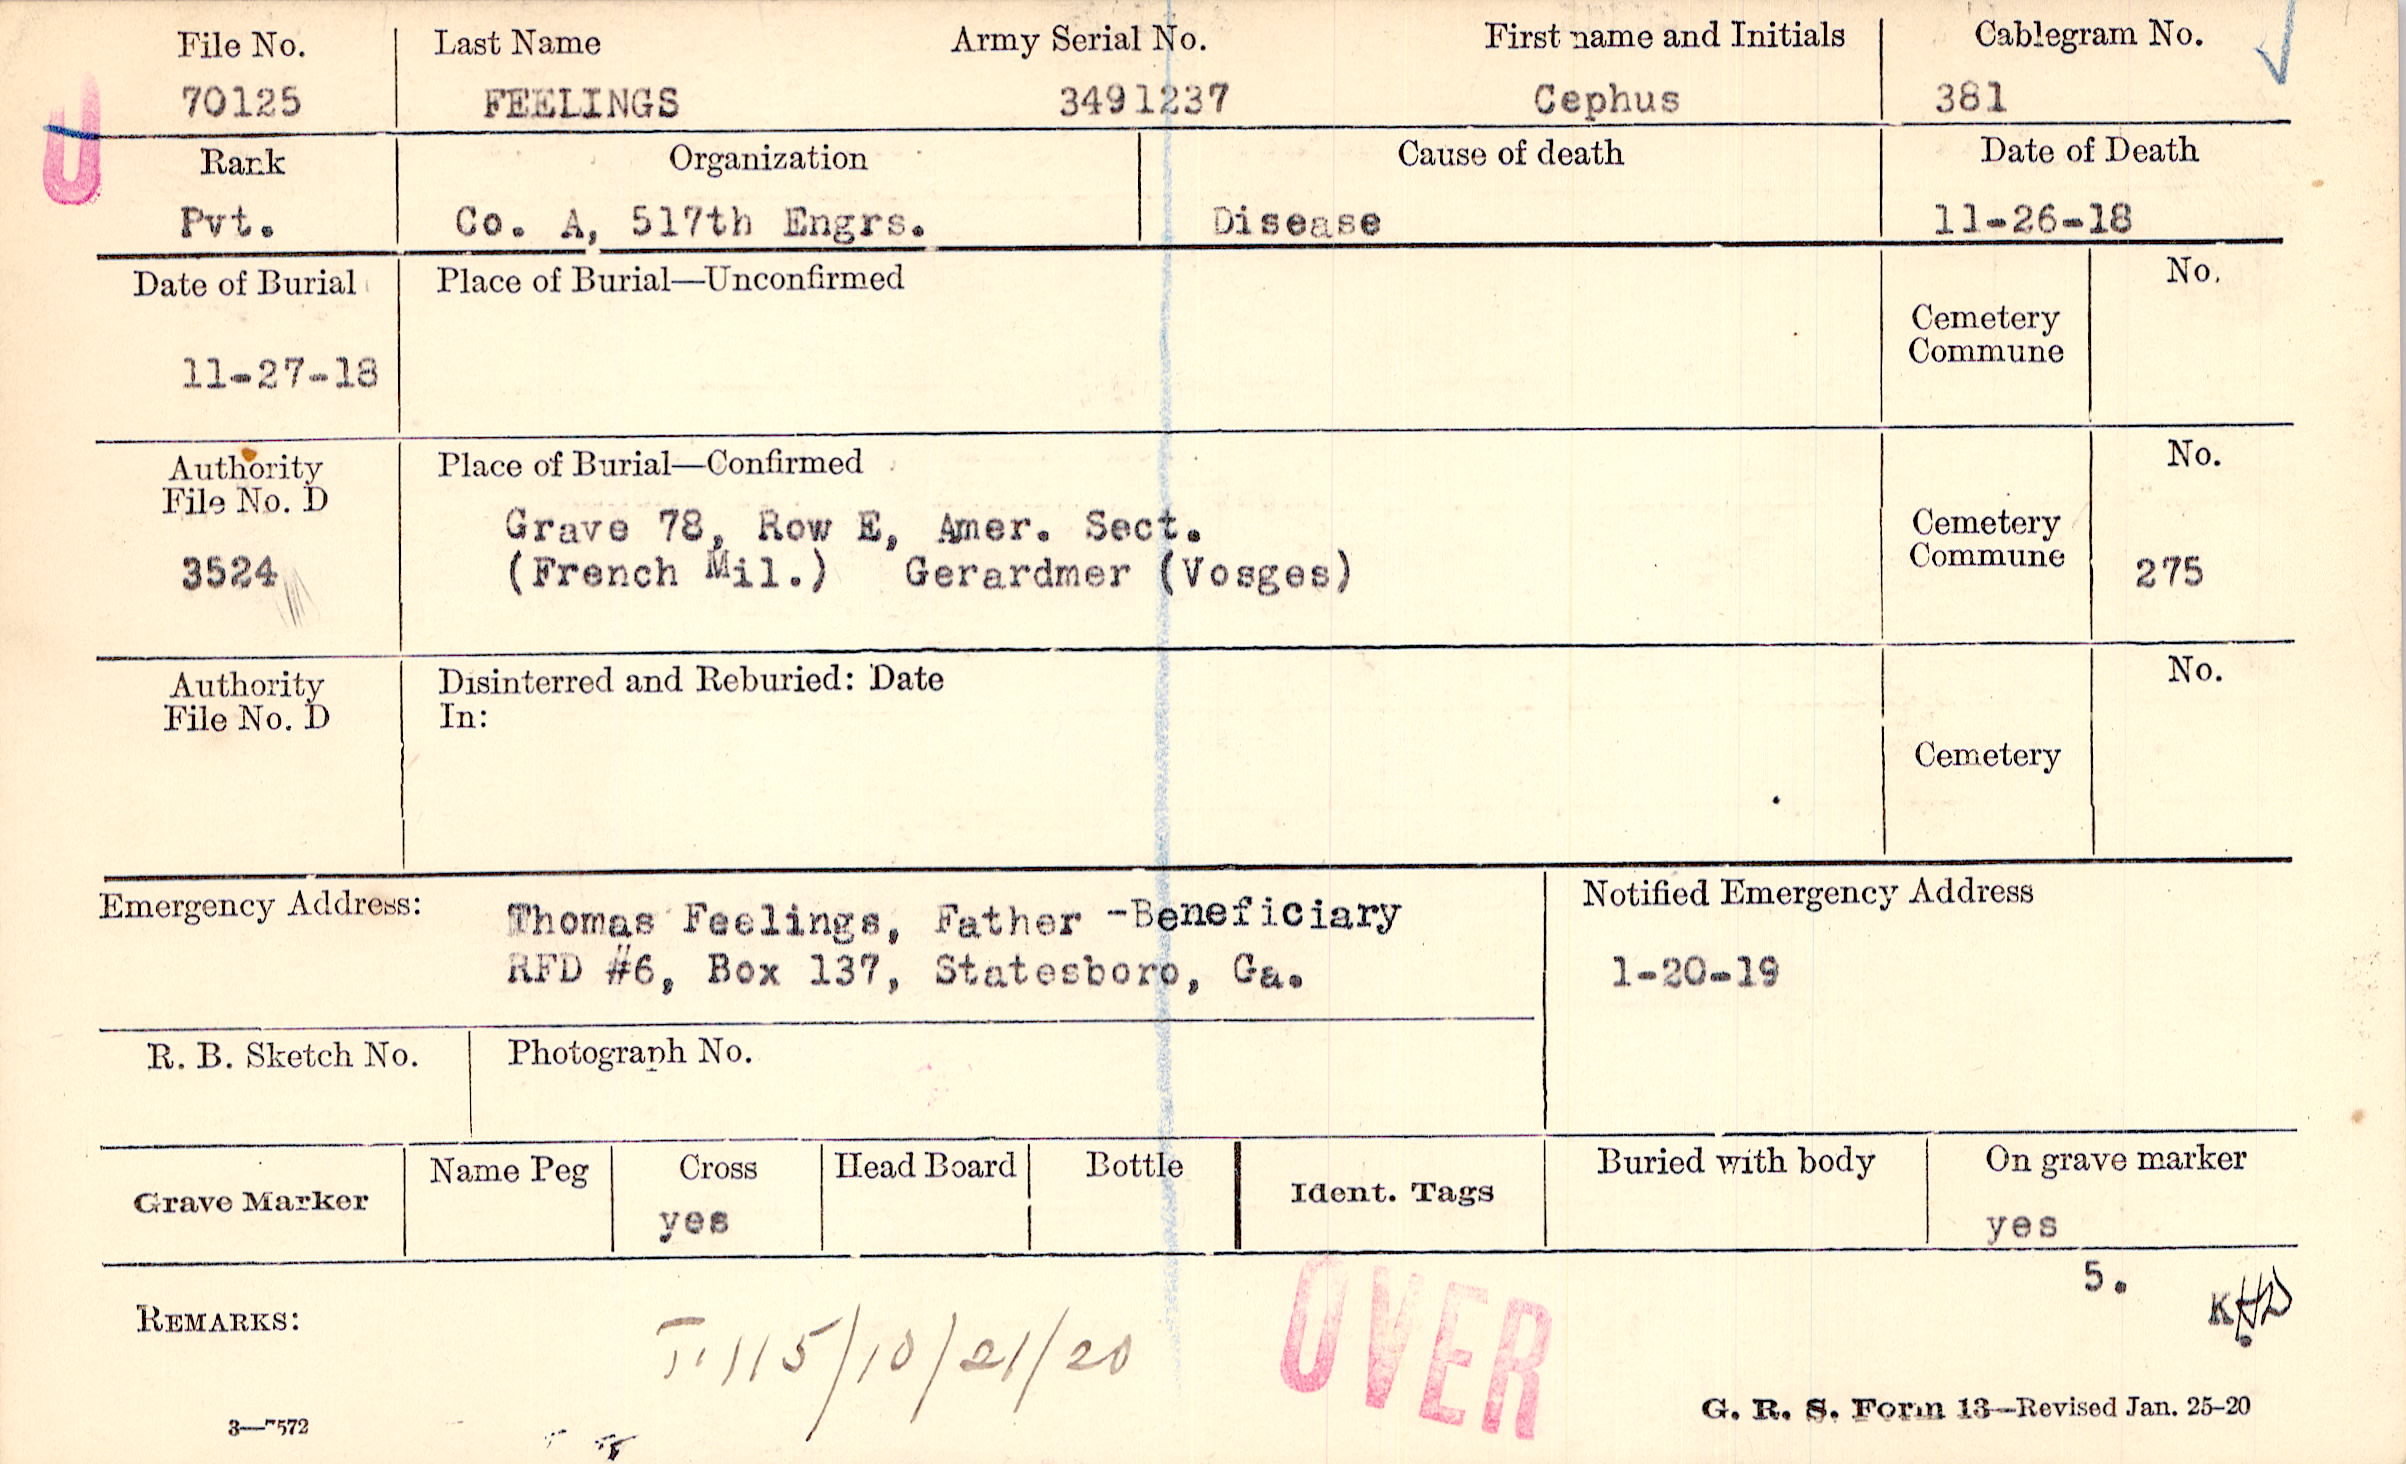 File No. Last Name Army Serial No. First name and Initials Cablegram No.
70125 FEELINGS 3491237 Cephus 381
U
Rank Organization Cause of death Date of Death
Pvt. Co. A, 517th Engrs. Disease 11-26-18
Date of Burial Place of Burial—Unconfirmed No.
Cemetery
Commune
11-27-18
Authority Place of Burial—Confirmed No.
File No. D
Grave 78, Row E, Amer. Sect. Cemetery
3524 (French Mil.) Gerardmer (Vosges) Commune 275
Authority Disinterred and Reburied: Date No.
File No. D In:
Cemetery
Emergency Address: Thomas Feelings, Father -Beneficiary Notified Emergency Address
RFD #6, Box 137, Statesboro, Ga. 1-20-19
R. B. Sketch No. Photograph No.
Grave Marker Name Peg Cross Head Board Bottle Ident. Tags Buried with body On grave marker
yes yes
5.
KHD
REMARKS: 115/10/21/20 OVER
3—7572 G. R. S. Form 13—Revised Jan. 25-20